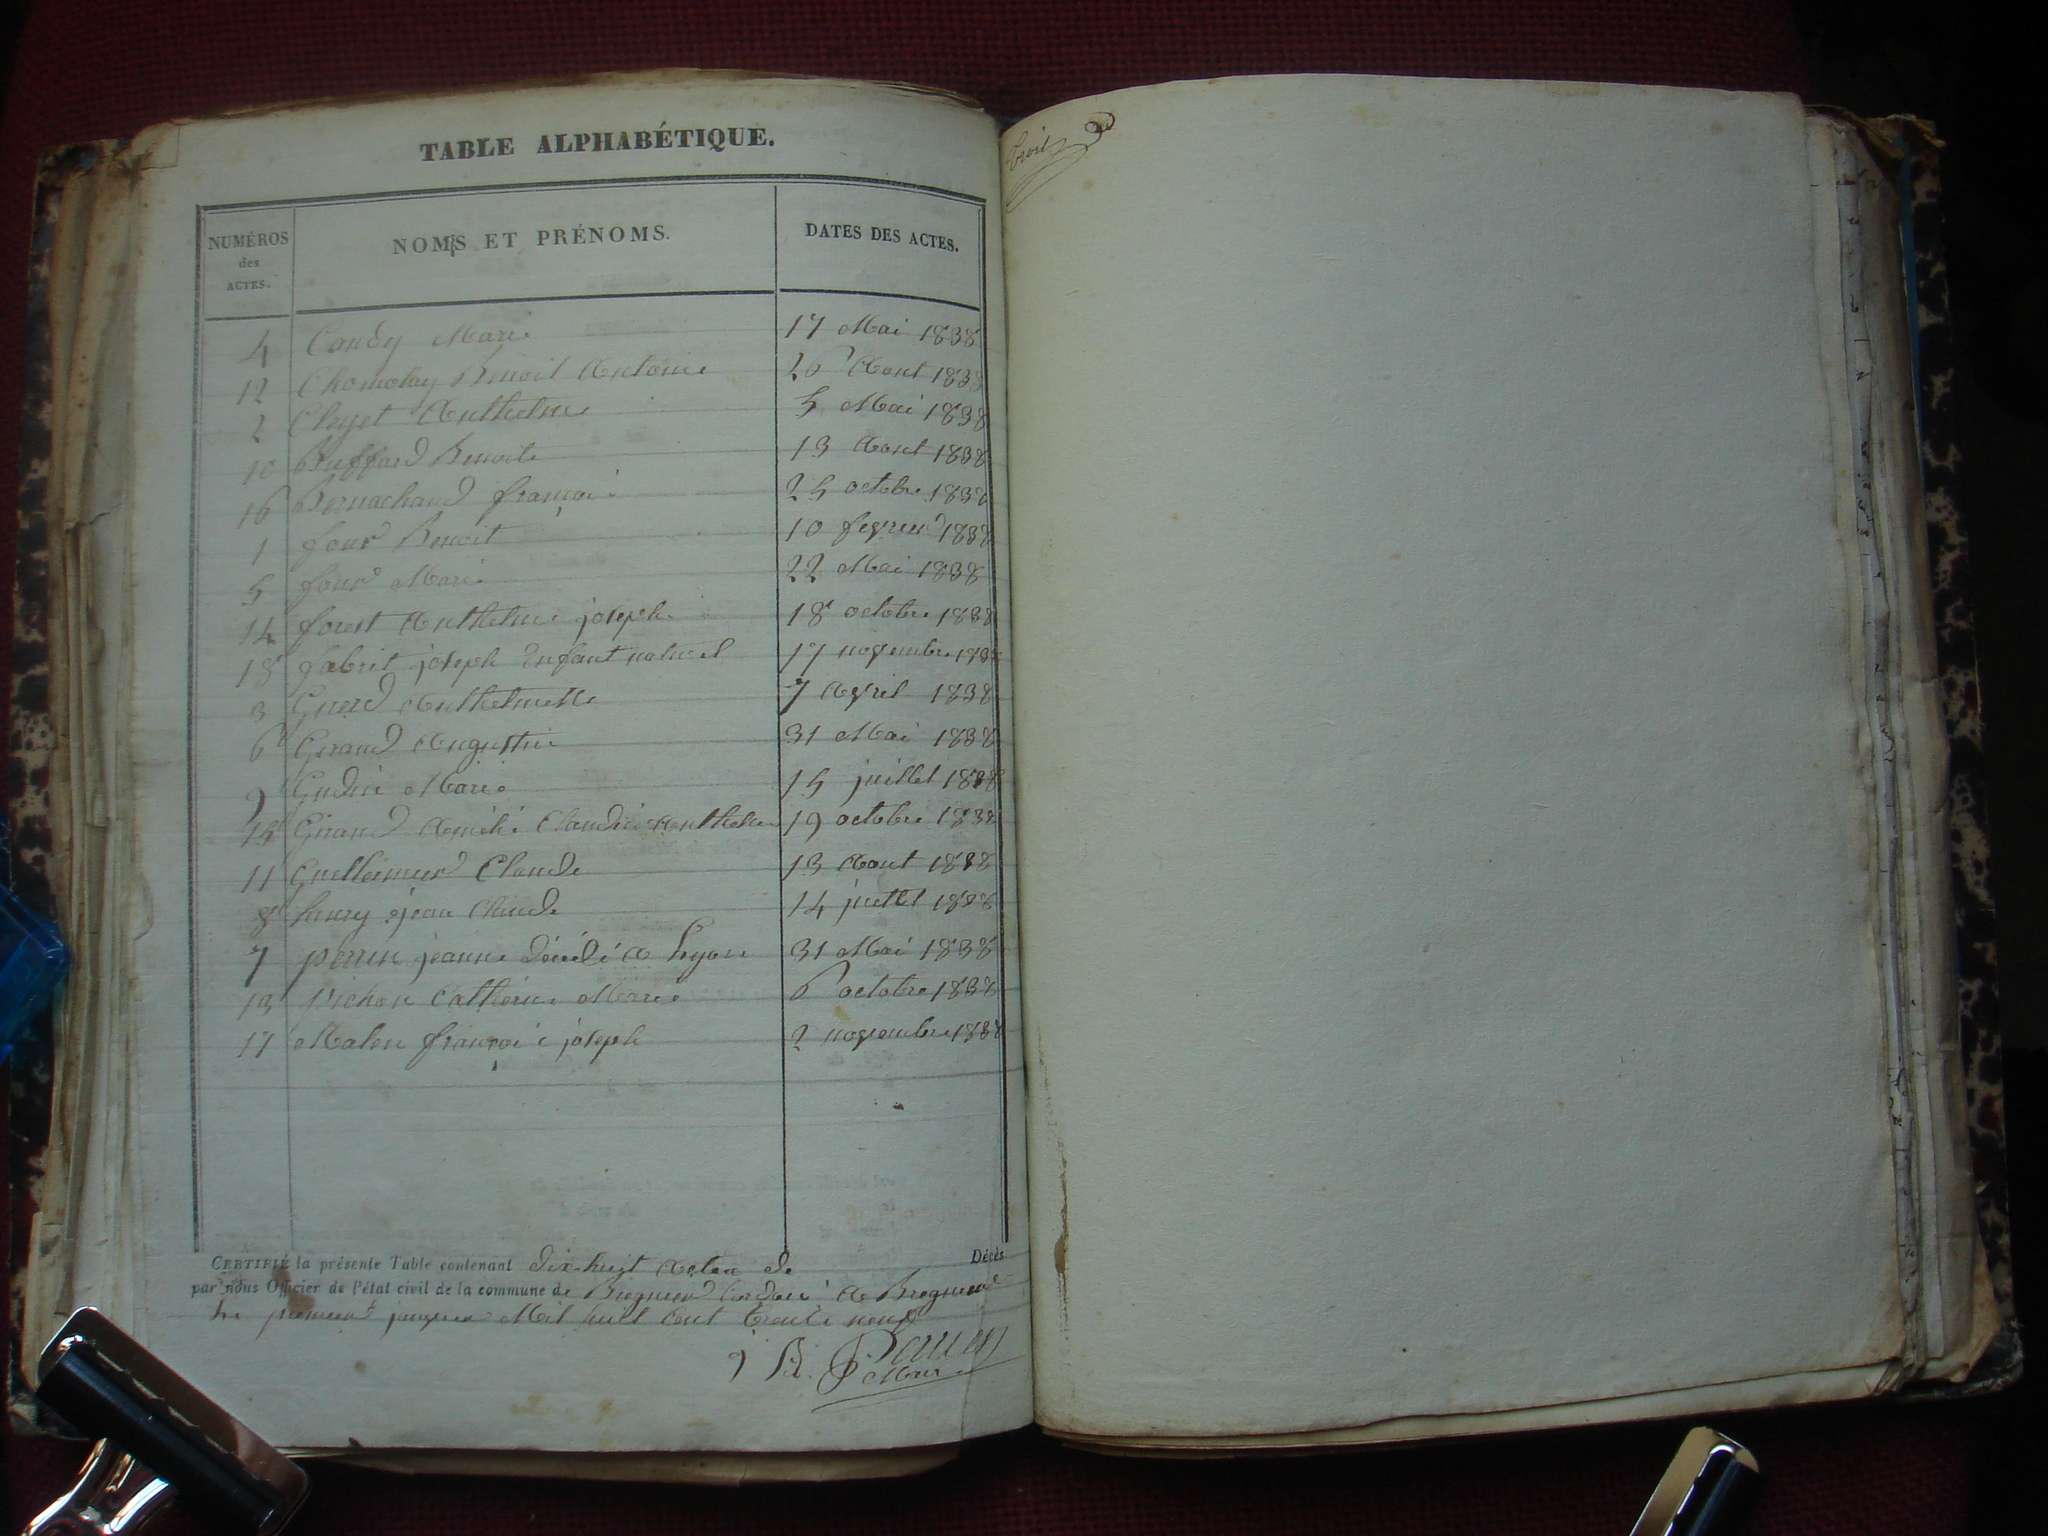 TABLE ALPHABÉTIQUE.
NUMÉROS des ACTES. NOMS ET PRÉNOMS. DATES DES ACTES.
4 Candy Marie 17 Mai 1838
12 Benoit Antoine 26 Aout 1838
2 Cleyet Anthelme 5 Mai 1838
10 Buffard Benoite 13 Aout 1838
16 Bernachaud françoi 25 octobre 1838
1 four Benoit 10 1838
5 four Marie 22 Mai 1838
14 forest Anthelme joseph 18 octobre 1838
18 fabrit joseph Enfant naturel 17 novembre 1838
3 Anthelmette 7 Avril 1838
6 Giraud Augustin 31 Mai 1838
9 Marie 15 juillet 1838
15 Giraud Claudi Anthelme 19 octobre 1838
11 Claude 13 Aout 1838
8 jean Claude 14 juillet 1838
7 perrin jeanne décédé a Lyon 31 Mai 1838
13 pichon Catherine Marie 6 octobre 1838
17 françoi joseph 2 novembre 1838
CERTIFIÉ la présente Table contenant dix-huit actes de Décès
par nous Officier de l'état civil de la commune de Bregnier Cordon a Bregnier
Le premier janvier Mil huit Cent trente neuf